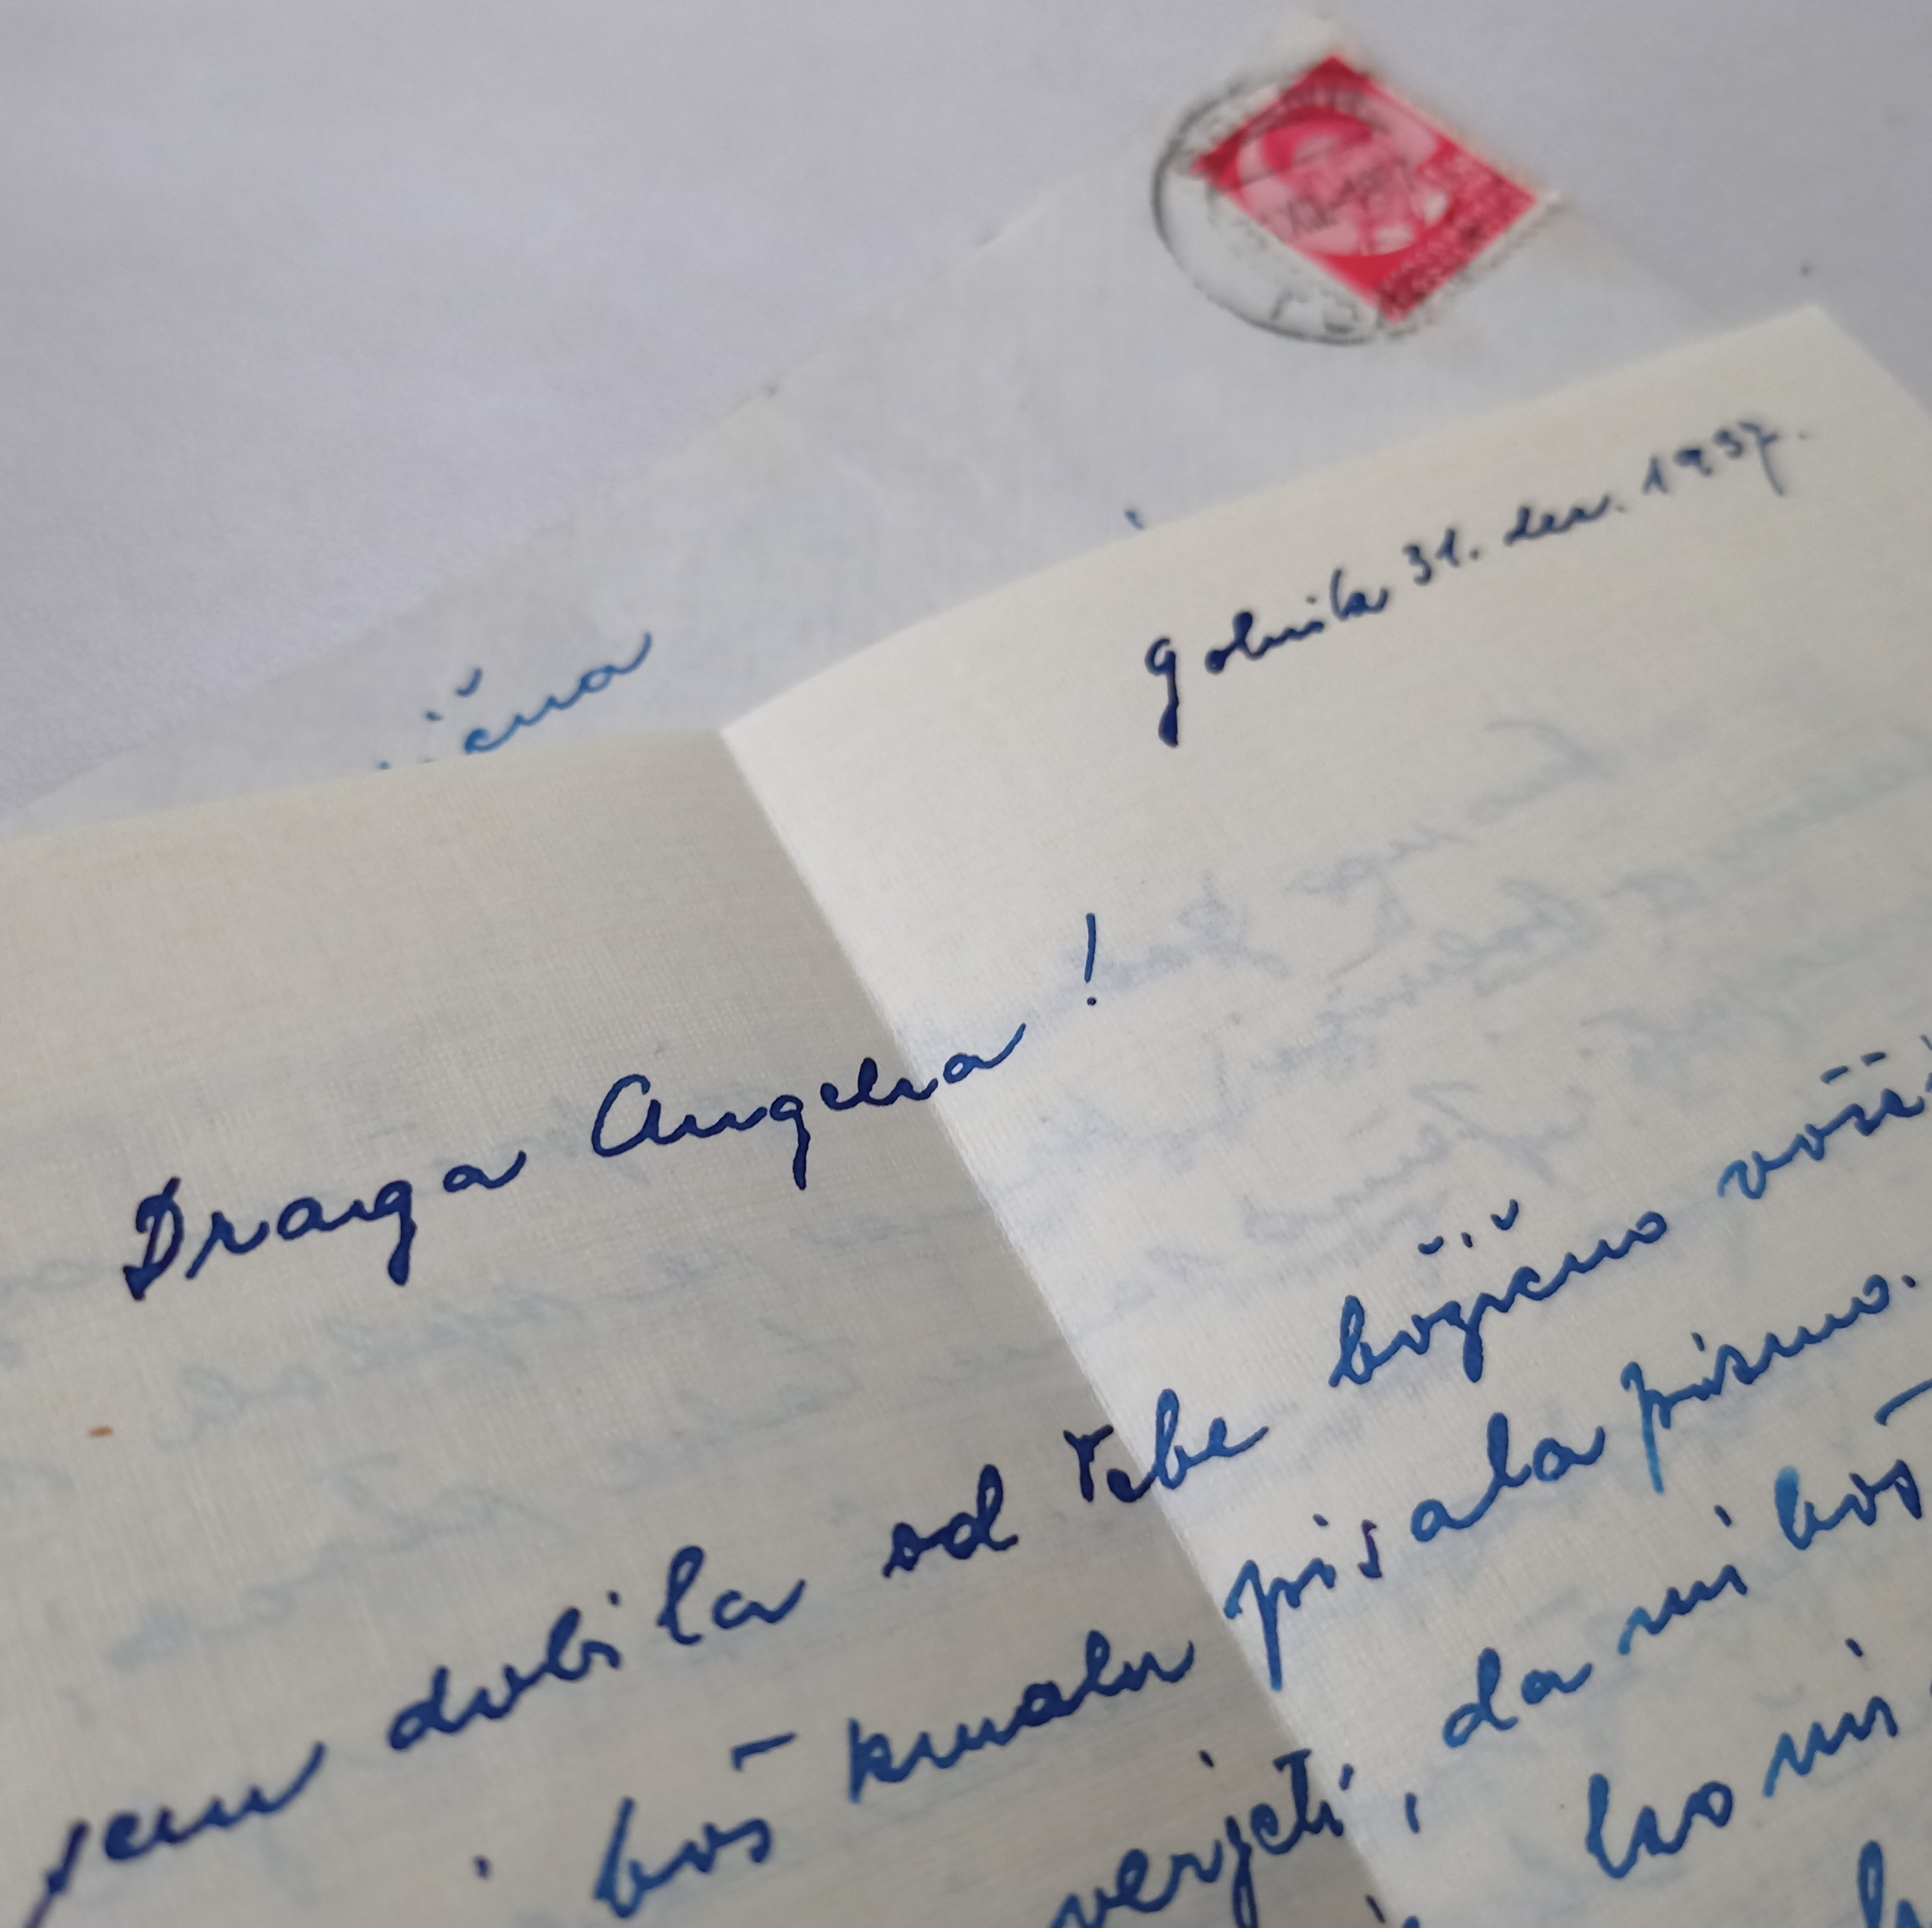 Golnik 31. dec. 1937.
Draga Angelca!
sem dobila od Tebe božično
boš kmalu pisala pismo.
verjeti, da mi boš
ko mi